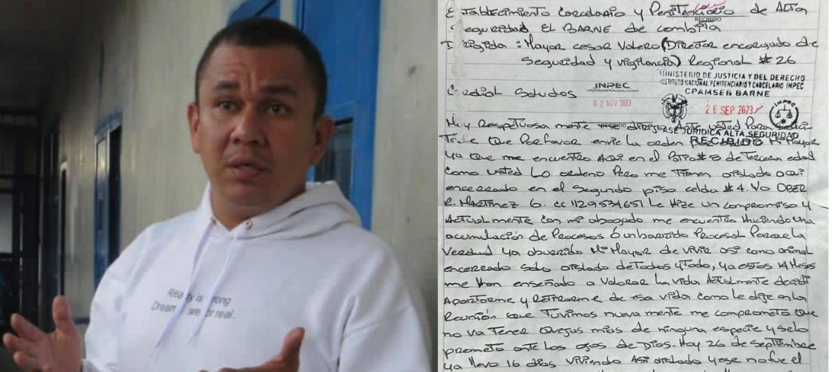 Really is wrong
Dreams are for real...
Establecimiento Carcelario y Penitenciario de Alta
Seguridad El BARNE de Combita
Dirigida: Mayor cesar Valero (Director encargado de
Seguridad y vigilancia) Regional # 26
RECIBIDO
INPEC
02 NOV 2023
MINISTERIO DE JUSTICIA Y DEL DERECHO
INSTITUTO NACIONAL PENITENCIARIO Y CARCELARIO INPEC
CPAMSEB BARNE
26 SEP 2023
INPEC
JURÍDICA ALTA SEGURIDAD
RECIBIDO
Cordial Saludos
Muy Respetuosa mente me dirijo a usted Para
que Porfavor envie la orden Mi Mayor
ya que me encuentro AQui en el Patio # 8 de Tercera edad
como usted Lo ordeno Pero me Tienen aislado aqui
encerrado en el segundo piso celda # 4. Yo OBER
R. Martinez G. cc 1129534651 Le Hize un compromiso y
Actualmente con mi abogado me encuentro Haciendo Una
acumulación de Procesos ó un barrido Procesal Porque La
Verdad ya aburrido Mi Mayor de vivir asi como animal
encerrado solo aislado de Todos y Todo, ya estos 14 Meses
me Han enseñado a Valorar la vida Actualmente decidi
Apartarme y Retirarme de esa vida como le dije en La
Reunion que Tuvimos nueva mente me comprometo que
no va Tener Quejas mias de ninguna especie y selo
prometo ante los ojos de Dios. Hoy 26 de septiembre
ya llevo 16 dias viviendo Asi aislado y ese no fue el